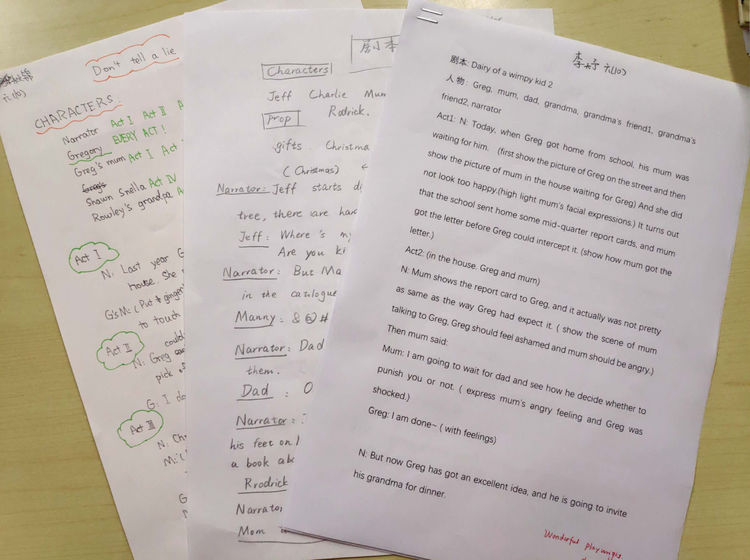 Don't tell a lie
六(10)
CHARACTERS:
Narrator Act I Act II A
Gregory EVERY ACT!
Greg's mum Act I Act
Shawn Snella Act IV
Rowley's grandpa A
Act I
N: Last year G
house. She
G'sM: (Put
to touch
Act II
could
N: Greg
pick
G: I do
Act III
N: Ch
M: (
G
剧本
Characters
Jeff Charlie Mum
Rodrick.
Prop
gifts Christma
(Christmas)
Narrator: Jeff starts di
tree, there are har
Jeff: Where's my
Are you ki
Narrator: But Ma
in the catalogue
Manny: & @ #
Narrator: Dad
them.
Dad : O
Narrator:
his feet on
a book abo
Rrodrick
Narrator
Mom
李好 六(10)
剧本: Dairy of a wimpy kid 2
人物: Greg, mum, dad, grandma, grandma's friend1, grandma's
friend2, narrator
Act1: N: Today, when Greg got home from school, his mum was
waiting for him. (first show the picture of Greg on the street and then
show the picture of mum in the house waiting for Greg) And she did
not look too happy.(high light mum's facial expressions.) It turns out
that the school sent home some mid-quarter report cards, and mum
got the letter before Greg could intercept it. (show how mum got the
letter.)
Act2: (in the house. Greg and mum)
N: Mum shows the report card to Greg, and it actually was not pretty
as same as the way Greg had expect it. ( show the scene of mum
talking to Greg, Greg should feel ashamed and mum should be angry.)
Then mum said:
Mum: I am going to wait for dad and see how he decide whether to
punish you or not. ( express mum's angry feeling and Greg was
shocked.)
Greg: I am done~ ( with feelings)
N: But now Greg has got an excellent idea, and he is going to invite
his grandma for dinner.
Wonderful